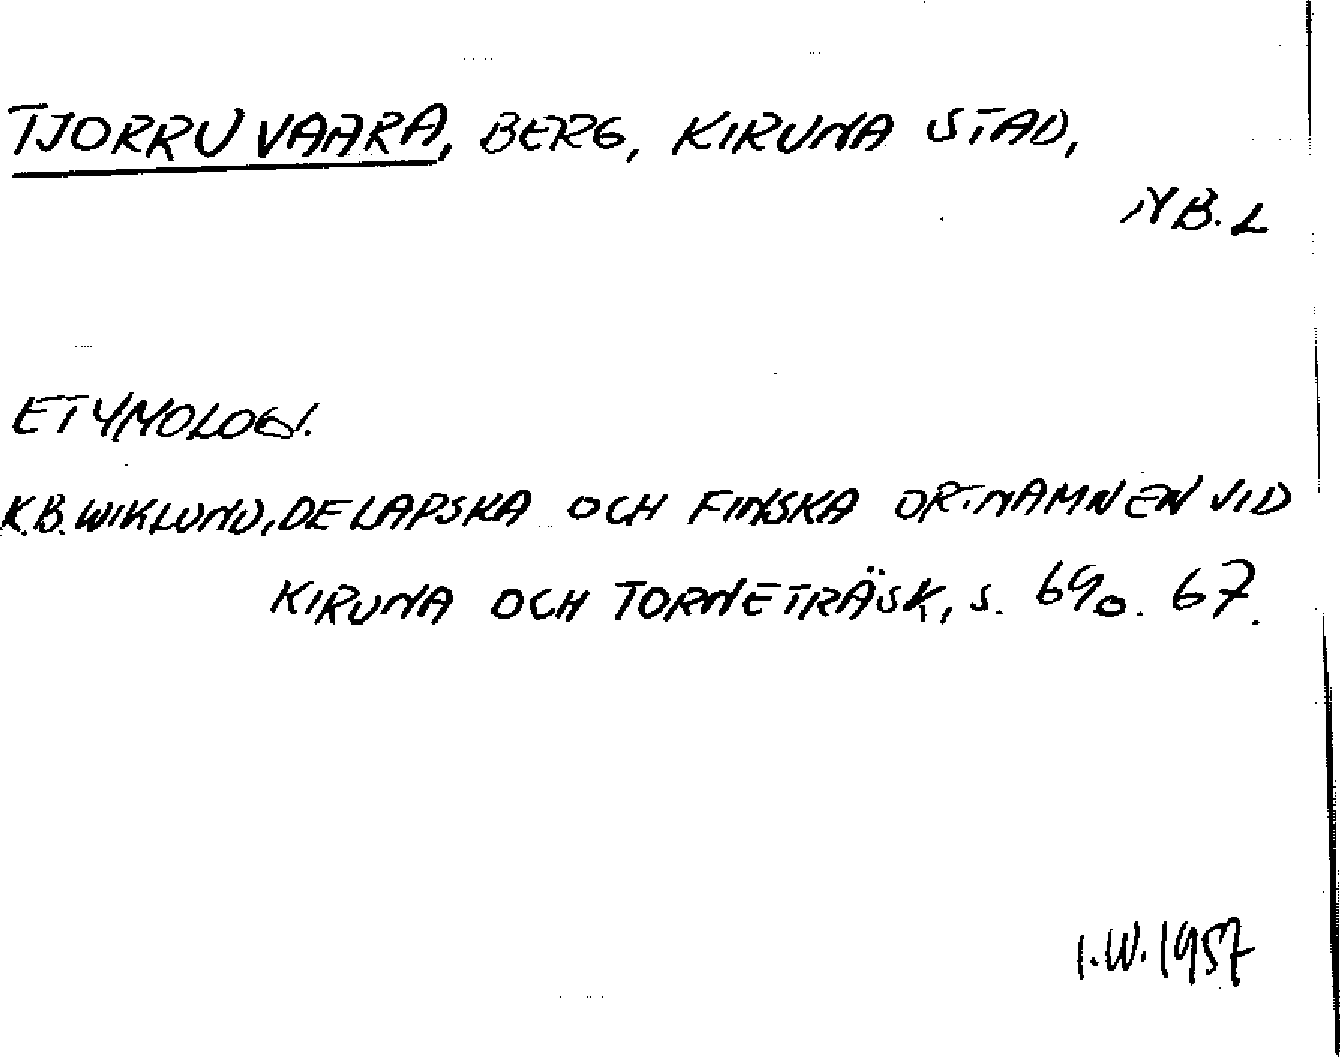 TJORRUVAARA, BERG, KIRUNA STAD,
NB. L
ETYMOLOGI.
K.B. WIKLUND, DE LAPSKA OCH FINSKA ORTNAMNEN VID
KIRUNA OCH TORNETRÄSK, S. 69 o. 67.
I.W. 1957